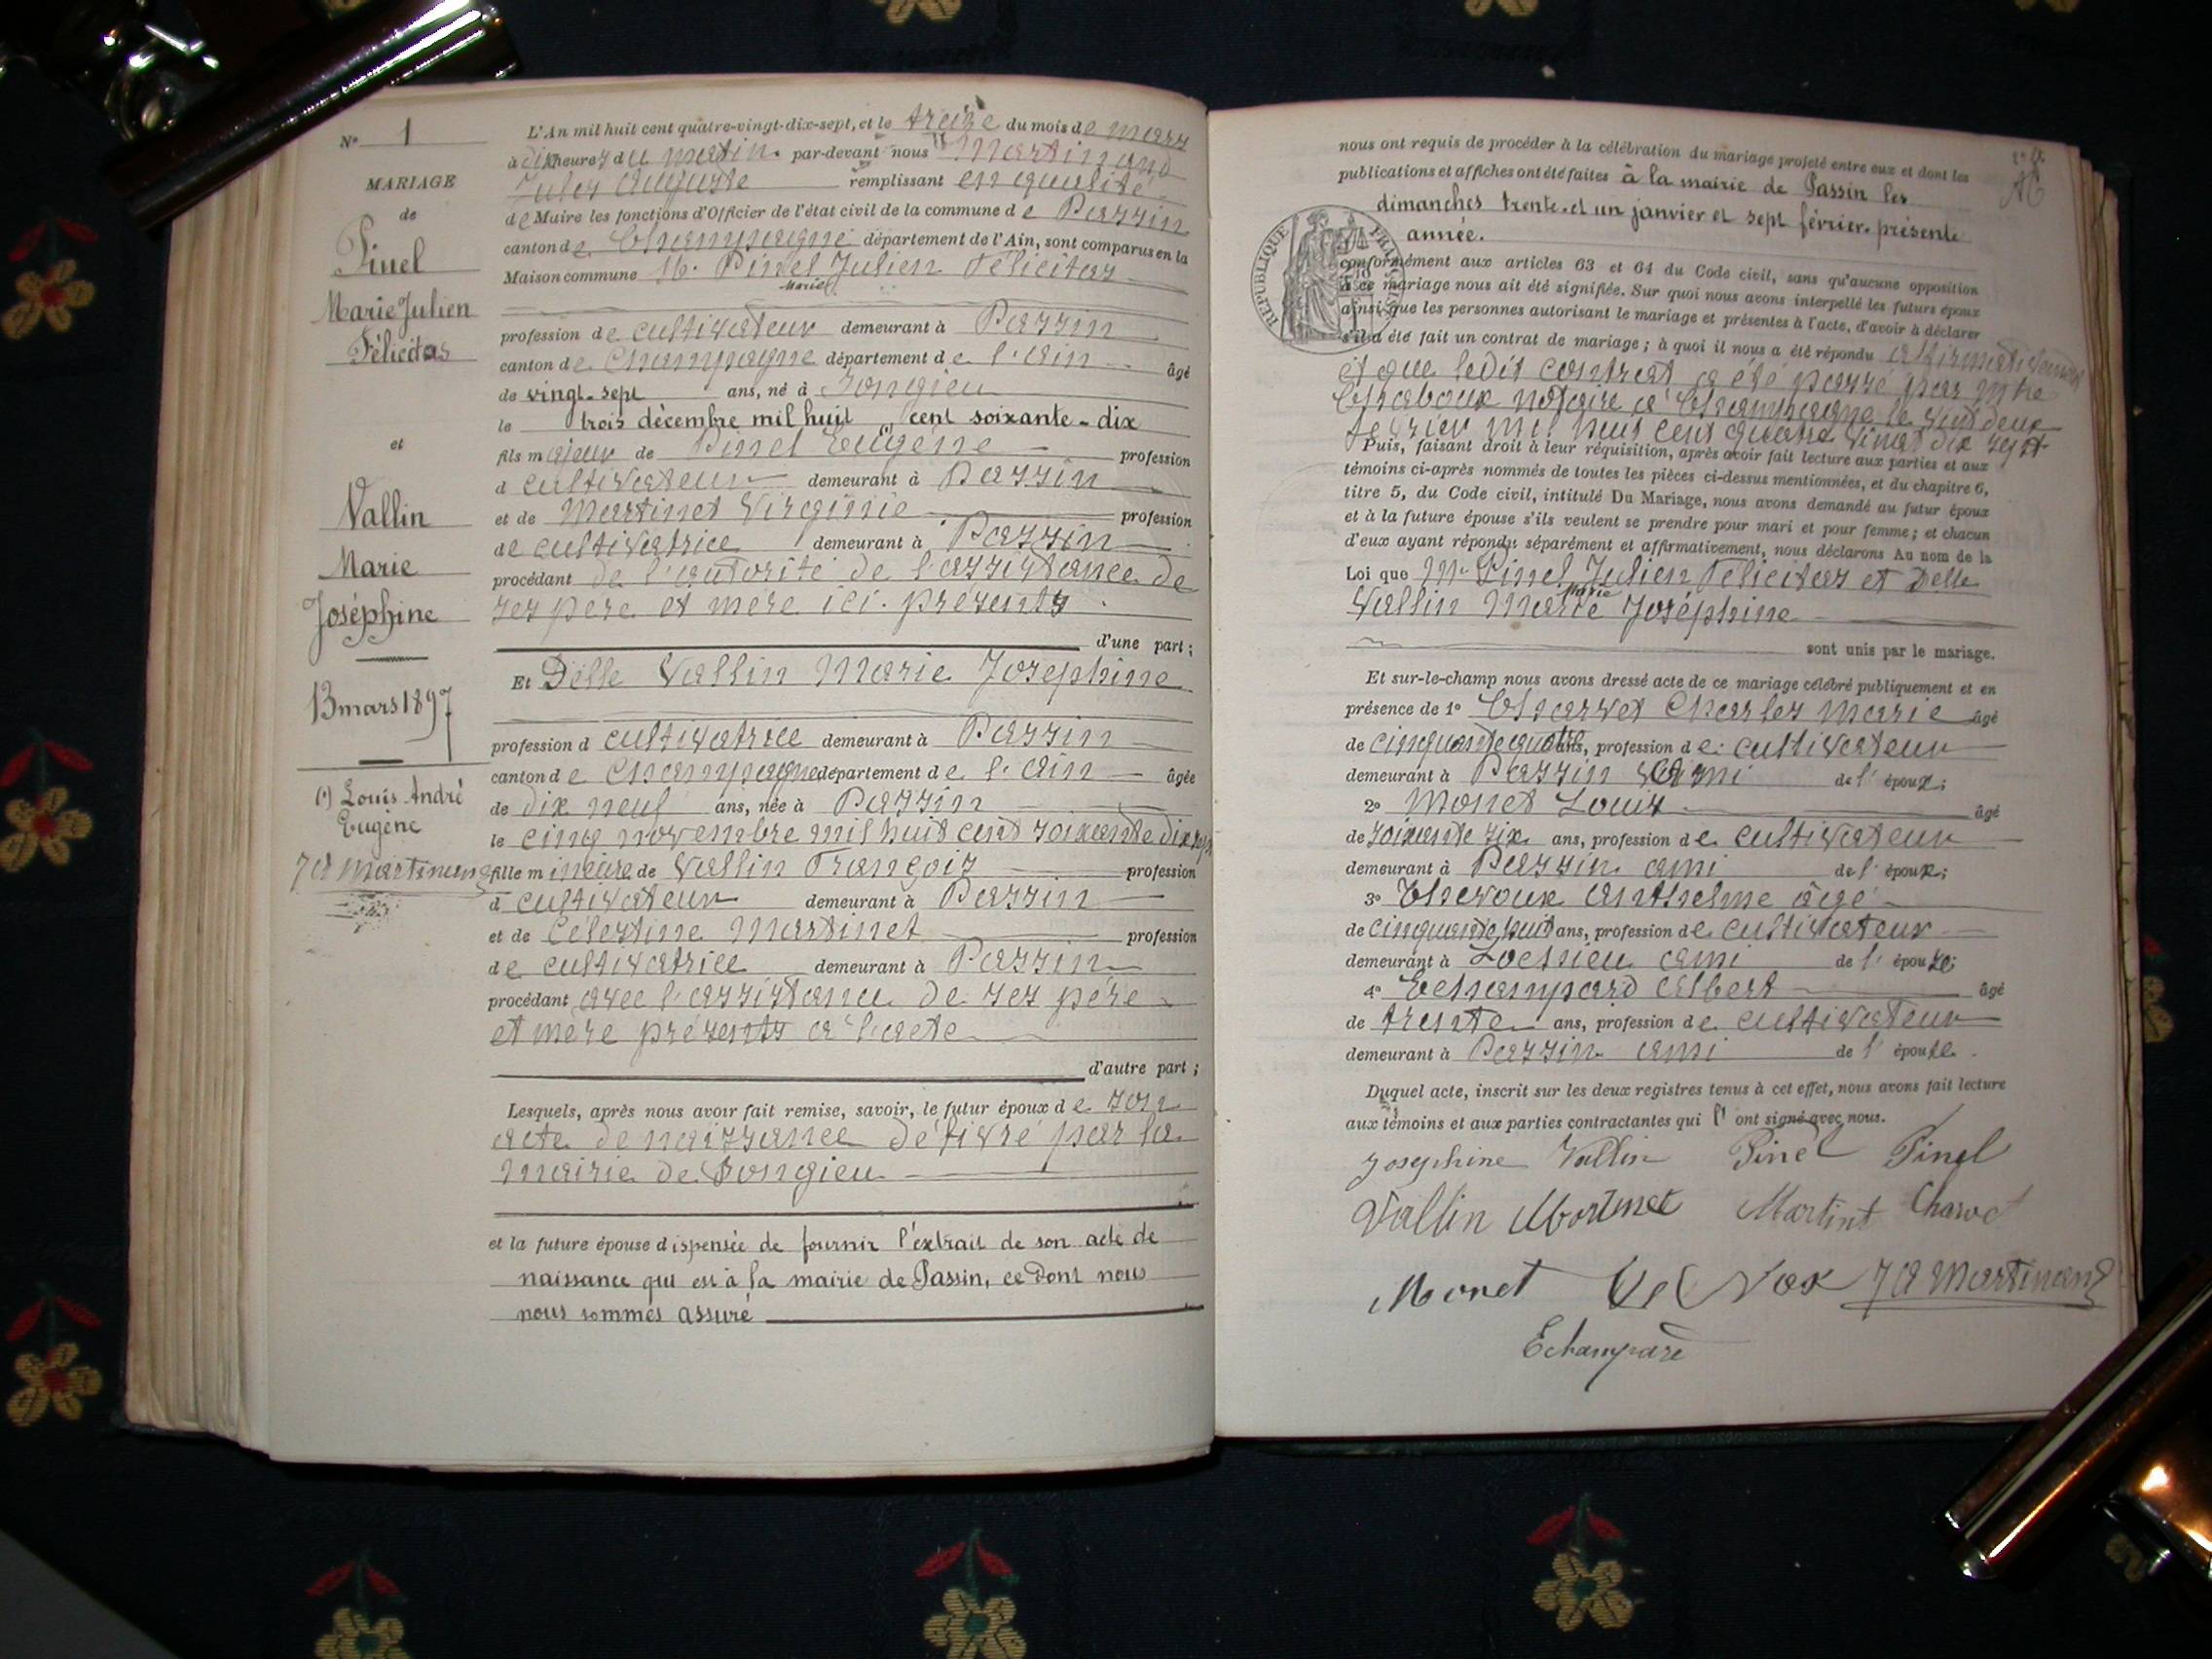 N° 1
MARIAGE
de
Pinel
Marie Julien
Félicitas
et
Vallin
Marie
Joséphine
13 mars 1897
(1) Louis André
Eugène
JA Martinand
L'An mil huit cent quatre-vingt-dix-sept, et le treize du mois de mars
à dix heures du matin. par-devant nous Martinand
Jules Auguste remplissant en qualité
de Maire les fonctions d'Officier de l'état civil de la commune de Passin
canton de Champagne département de l'Ain, sont comparus en la
Maison commune M. Pinel Julien Félicitas
Marie
profession de cultivateur demeurant à Passin
canton de Champagne département de l'Ain âgé
de vingt-sept ans, né à Jongieu
le trois décembre mil huit cent soixante-dix
fils majeur de Pinel (1) Eugène profession
d cultivateur demeurant à Passin
et de Martinet Virginie profession
de cultivatrice demeurant à Passin
procédant de l'autorité de l'assistance de
ses père et mère ici présents
d'une part ;
Et Delle Vallin Marie Joséphine
profession d cultivatrice demeurant à Passin
canton de Champagne département de l'Ain âgée
de dix neuf ans, née à Passin
le cinq novembre mil huit cent soixante dix sept
fille mineure de Vallin François profession
d cultivateur demeurant à Passin
et de Célestine Martinet profession
de cultivatrice demeurant à Passin
procédant avec l'assistance de ses père
et mère présents a l'acte
d'autre part ;
Lesquels, après nous avoir fait remise, savoir, le futur époux de son
acte de naissance délivré par la
mairie de Jongieu
et la future épouse dispensée de fournir l'extrait de son acte de
naissance qui est à la mairie de Passin, ce dont nous
nous sommes assuré
nous ont requis de procéder à la célébration du mariage projeté entre eux et dont les
publications et affiches ont été faites à la mairie de Passin les
dimanches trente-et un janvier et sept février, présente
année.
RÉPUBLIQUE FRANÇAISE
conformément aux articles 63 et 64 du Code civil, sans qu'aucune opposition
à ce mariage nous ait été signifiée. Sur quoi nous avons interpellé les futurs époux
ainsi que les personnes autorisant le mariage et présentes à l'acte, d'avoir à déclarer
s'il a été fait un contrat de mariage ; à quoi il nous a été répondu affirmativement
et que ledit contrat a été passé par mtre
Chaboux notaire a Champagne le vingt deux
février mil huit cent quatre vingt dix sept
Puis, faisant droit à leur réquisition, après avoir fait lecture aux parties et aux
témoins ci-après nommés de toutes les pièces ci-dessus mentionnées, et du chapitre 6,
titre 5, du Code civil, intitulé Du Mariage, nous avons demandé au futur époux
et à la future épouse s'ils veulent se prendre pour mari et pour femme ; et chacun
d'eux ayant répondu séparément et affirmativement, nous déclarons Au nom de la
Loi que Mr Pinel Julien Félicitas et Delle
Marie
Vallin Marie Joséphine
sont unis par le mariage.
Et sur-le-champ nous avons dressé acte de ce mariage célébré publiquement et en
présence de 1° Charvet Charles Marie âgé
de cinquante quatre ans, profession de cultivateur
demeurant à Passin ami de l'époux ;
2° Monet Louis âgé
de soixante six ans, profession de cultivateur
demeurant à Passin ami de l'époux ;
3° Thevoux Anthelme âgé
de cinquante huit ans, profession de cultivateur
demeurant à Lochieu ami de l'épouse ;
4° Echampard Albert âgé
de trente ans, profession de cultivateur
demeurant à Passin ami de l'épouse.
Duquel acte, inscrit sur les deux registres tenus à cet effet, nous avons fait lecture
aux témoins et aux parties contractantes qui l'ont signé avec nous.
Josephine Vallin Pinel Pinel
Vallin Martinet Charvet
Monet JA Martinand
Echampard